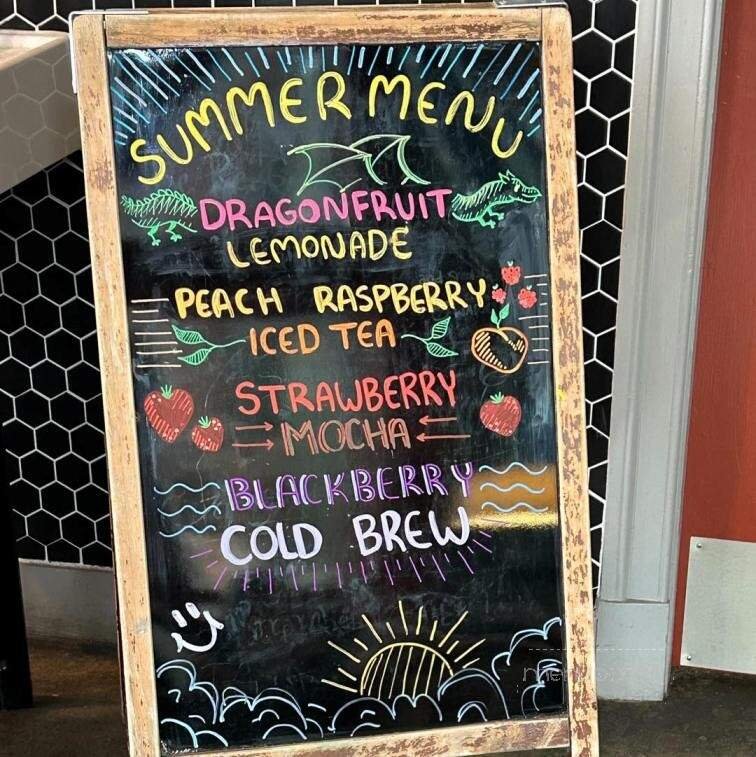 SUMMER MENU
DRAGONFRUIT
LEMONADE
PEACH RASPBERRY
ICED TEA
STRAWBERRY
MOCHA
BLACKBERRY
COLD BREW